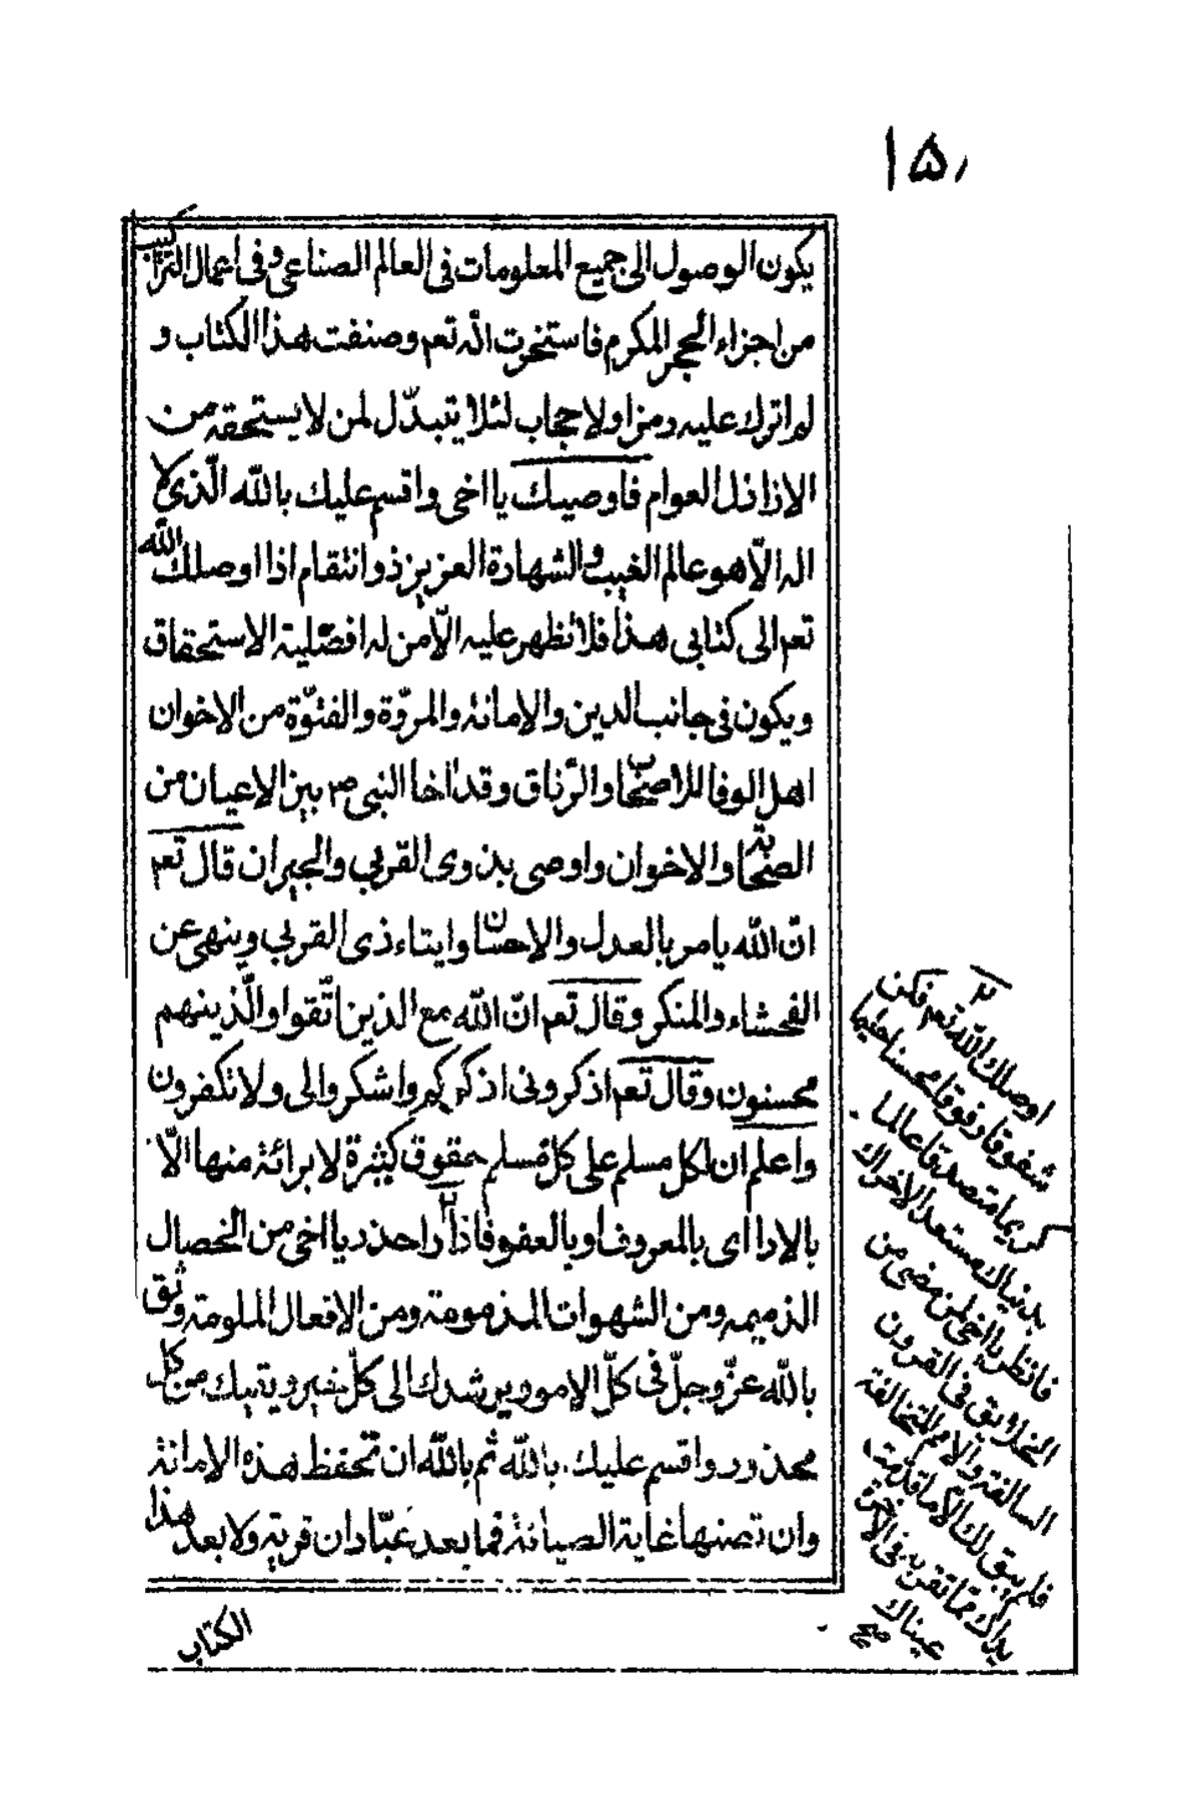 ١٥
يكون الوصول الى جميع المعلومات فى العالم الصناعى وفى اعمال التراكيب
من اجزاء الحجر المكرم فاستخرت الله تعم وصنفت هذا الكتاب و
لم اترك عليه رمزا ولا حجاب لئلا يتبدّل لمن لا يستحقه من
الاراذل العوام فاوصيك يا اخى واقسم عليك بالله الّذى لا
اله الّا هو عالم الغيب والشهادة العزيز ذو انتقام اذا اوصلك الله
تعم الى كتابى هذا فلا تظهر عليه الّا من له افضلية الاستحقاق
ويكون فى جانب الدين والامانة والمروّة والفتوّة من الاخوان
اهل الوفا للاصحاب والرفاق وقد اخا النبى ص بين الاعيان من
الصحابة والاخوان واوصى بذوى القربى والجيران قال تعم
انّ الله يامر بالعدل والاحسان وايتاء ذى القربى وينهى عن
الفحشاء والمنكر وقال تعم انّ الله مع الذين اتّقوا والّذينهم
محسنون وقال تعم اذكرونى اذكركم واشكروا لى ولا تكفرون
واعلم ان لكل مسلم على كل مسلم حقوق كثيرة لا برائة منها الّا
بالادا اى بالمعروف او بالعفو فاذا واحذر يا اخى من الخصال
الذميمه ومن الشهوات المذمومة ومن الافعال الملومة وثق
بالله عزّ وجلّ فى كلّ الامور يرشدك الى كلّ خير ويقيك من كل
محذور واقسم عليك بالله ثم بالله ان تحفظ هذه الامانة
وان تصنها غاية الصيانة فما بعد عبّادان قرية ولا بعد هذا
الكتاب
٢
اوصلك الله تعم فكن
شفوقا رفوقا محسنا حليما
كريما متصدقا عالما
بدنياك مستعد الاخراك
فانظر يا اخى لمن مضى من
الخلايق فى القرون
السالفة والامم المتخالفة
فلم يبق لك الّا ما قدّمت
يداك مما تقر به فى الآخرة
عيناك
صح